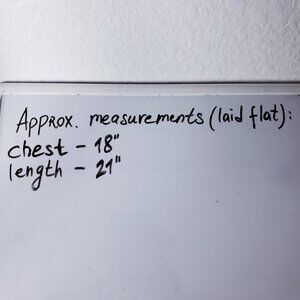 Approx. measurements (laid flat):
chest - 18"
length - 21"